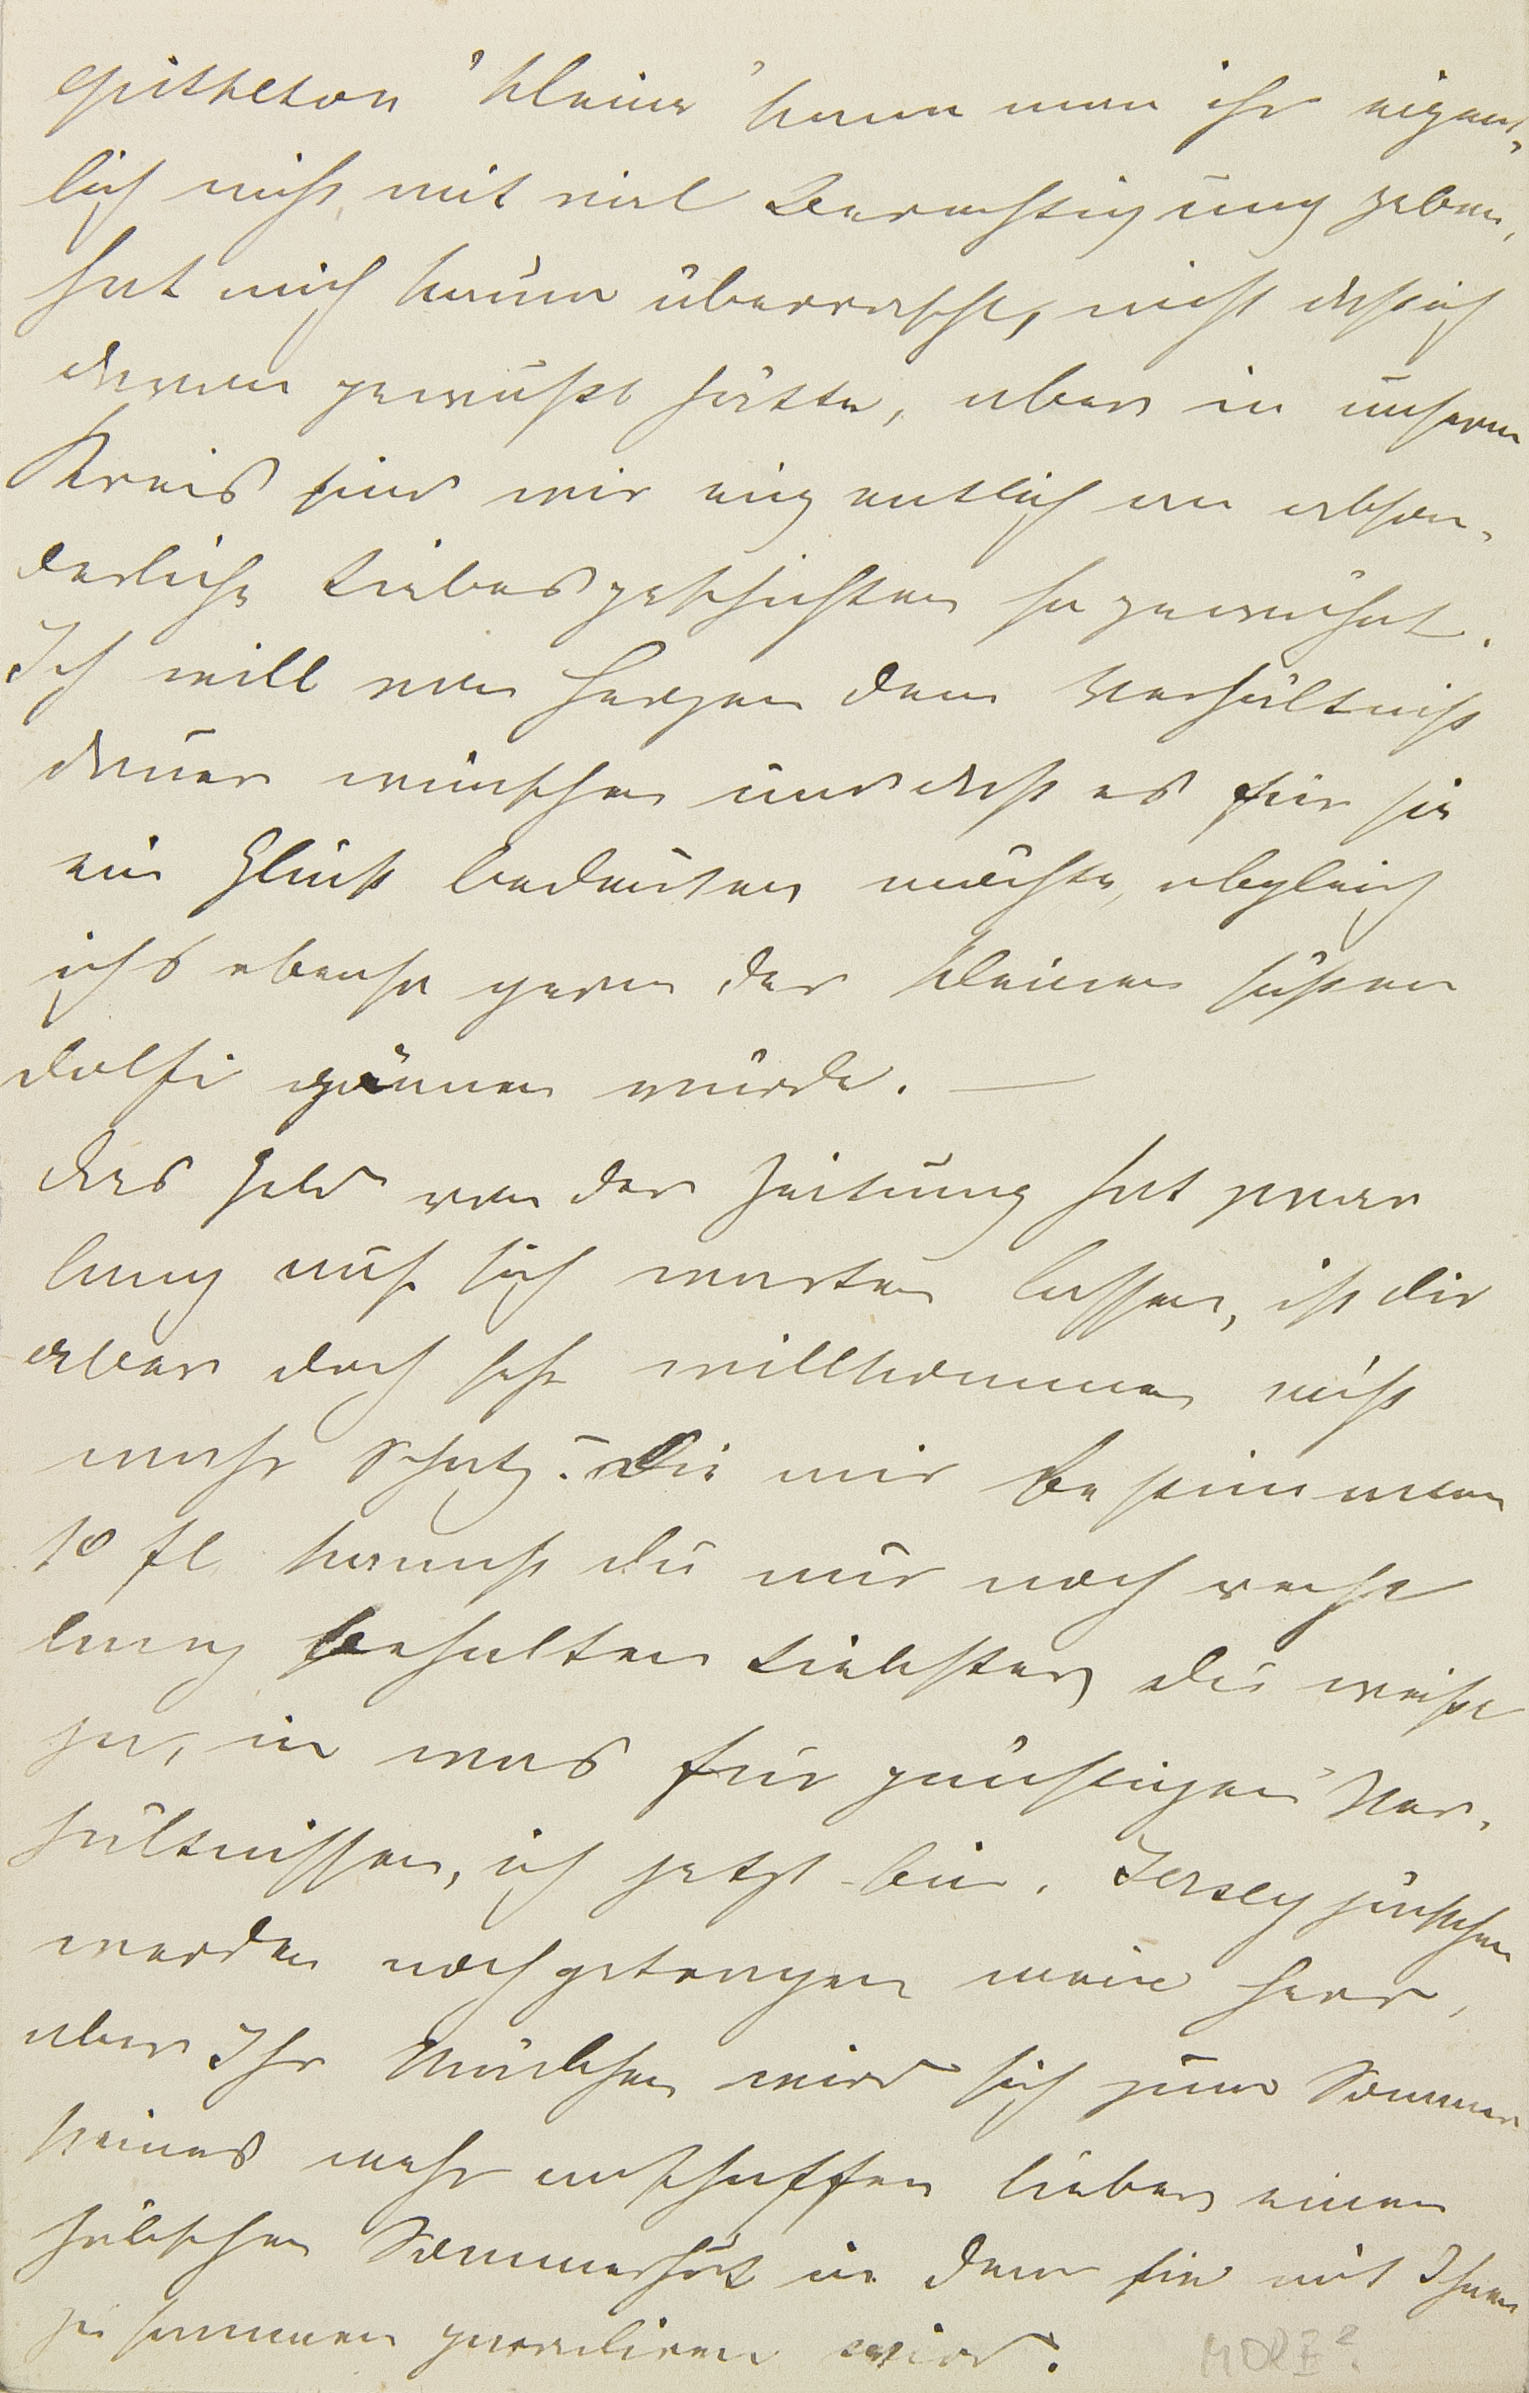 epitheton "kleine" kann man ihr eigent-
lich nicht mit viel Berechtigung geben,
hat mich kaum überrascht, nicht daß ich
davon gewußt hätte, aber in unserem
Kreis sind wir eigentlich an abson-
derliche Liebesgeschichten so gewöhnt.
Ich will von Herzen dem Verhältniß
dauer wünschen und daß es für sie
ein Glück bedeuten möchte, obgleich
ichs ebenso gern der kleinen süßen
Dolfi gönnen würde. —
Das Geld von der Zeitung hat zwar
lang auf sich warten lassen, ist dir
aber doch sehr willkommen nicht
wahr Schatz? Die mir bestimmten
10 fl kannst du nur noch recht
lang behalten Liebster, du weißt
ja, in was für günstigen Ver-
hältnissen, ich jetzt bin. Jersey jäckchen
werden noch getragen mein Herr,
aber Ihr Mädchen wird sich zum Sommer
keines mehr anschaffen lieber einen
hübschen Sommerhut in dem sie mit Ihnen
zusammen paradieren wird.